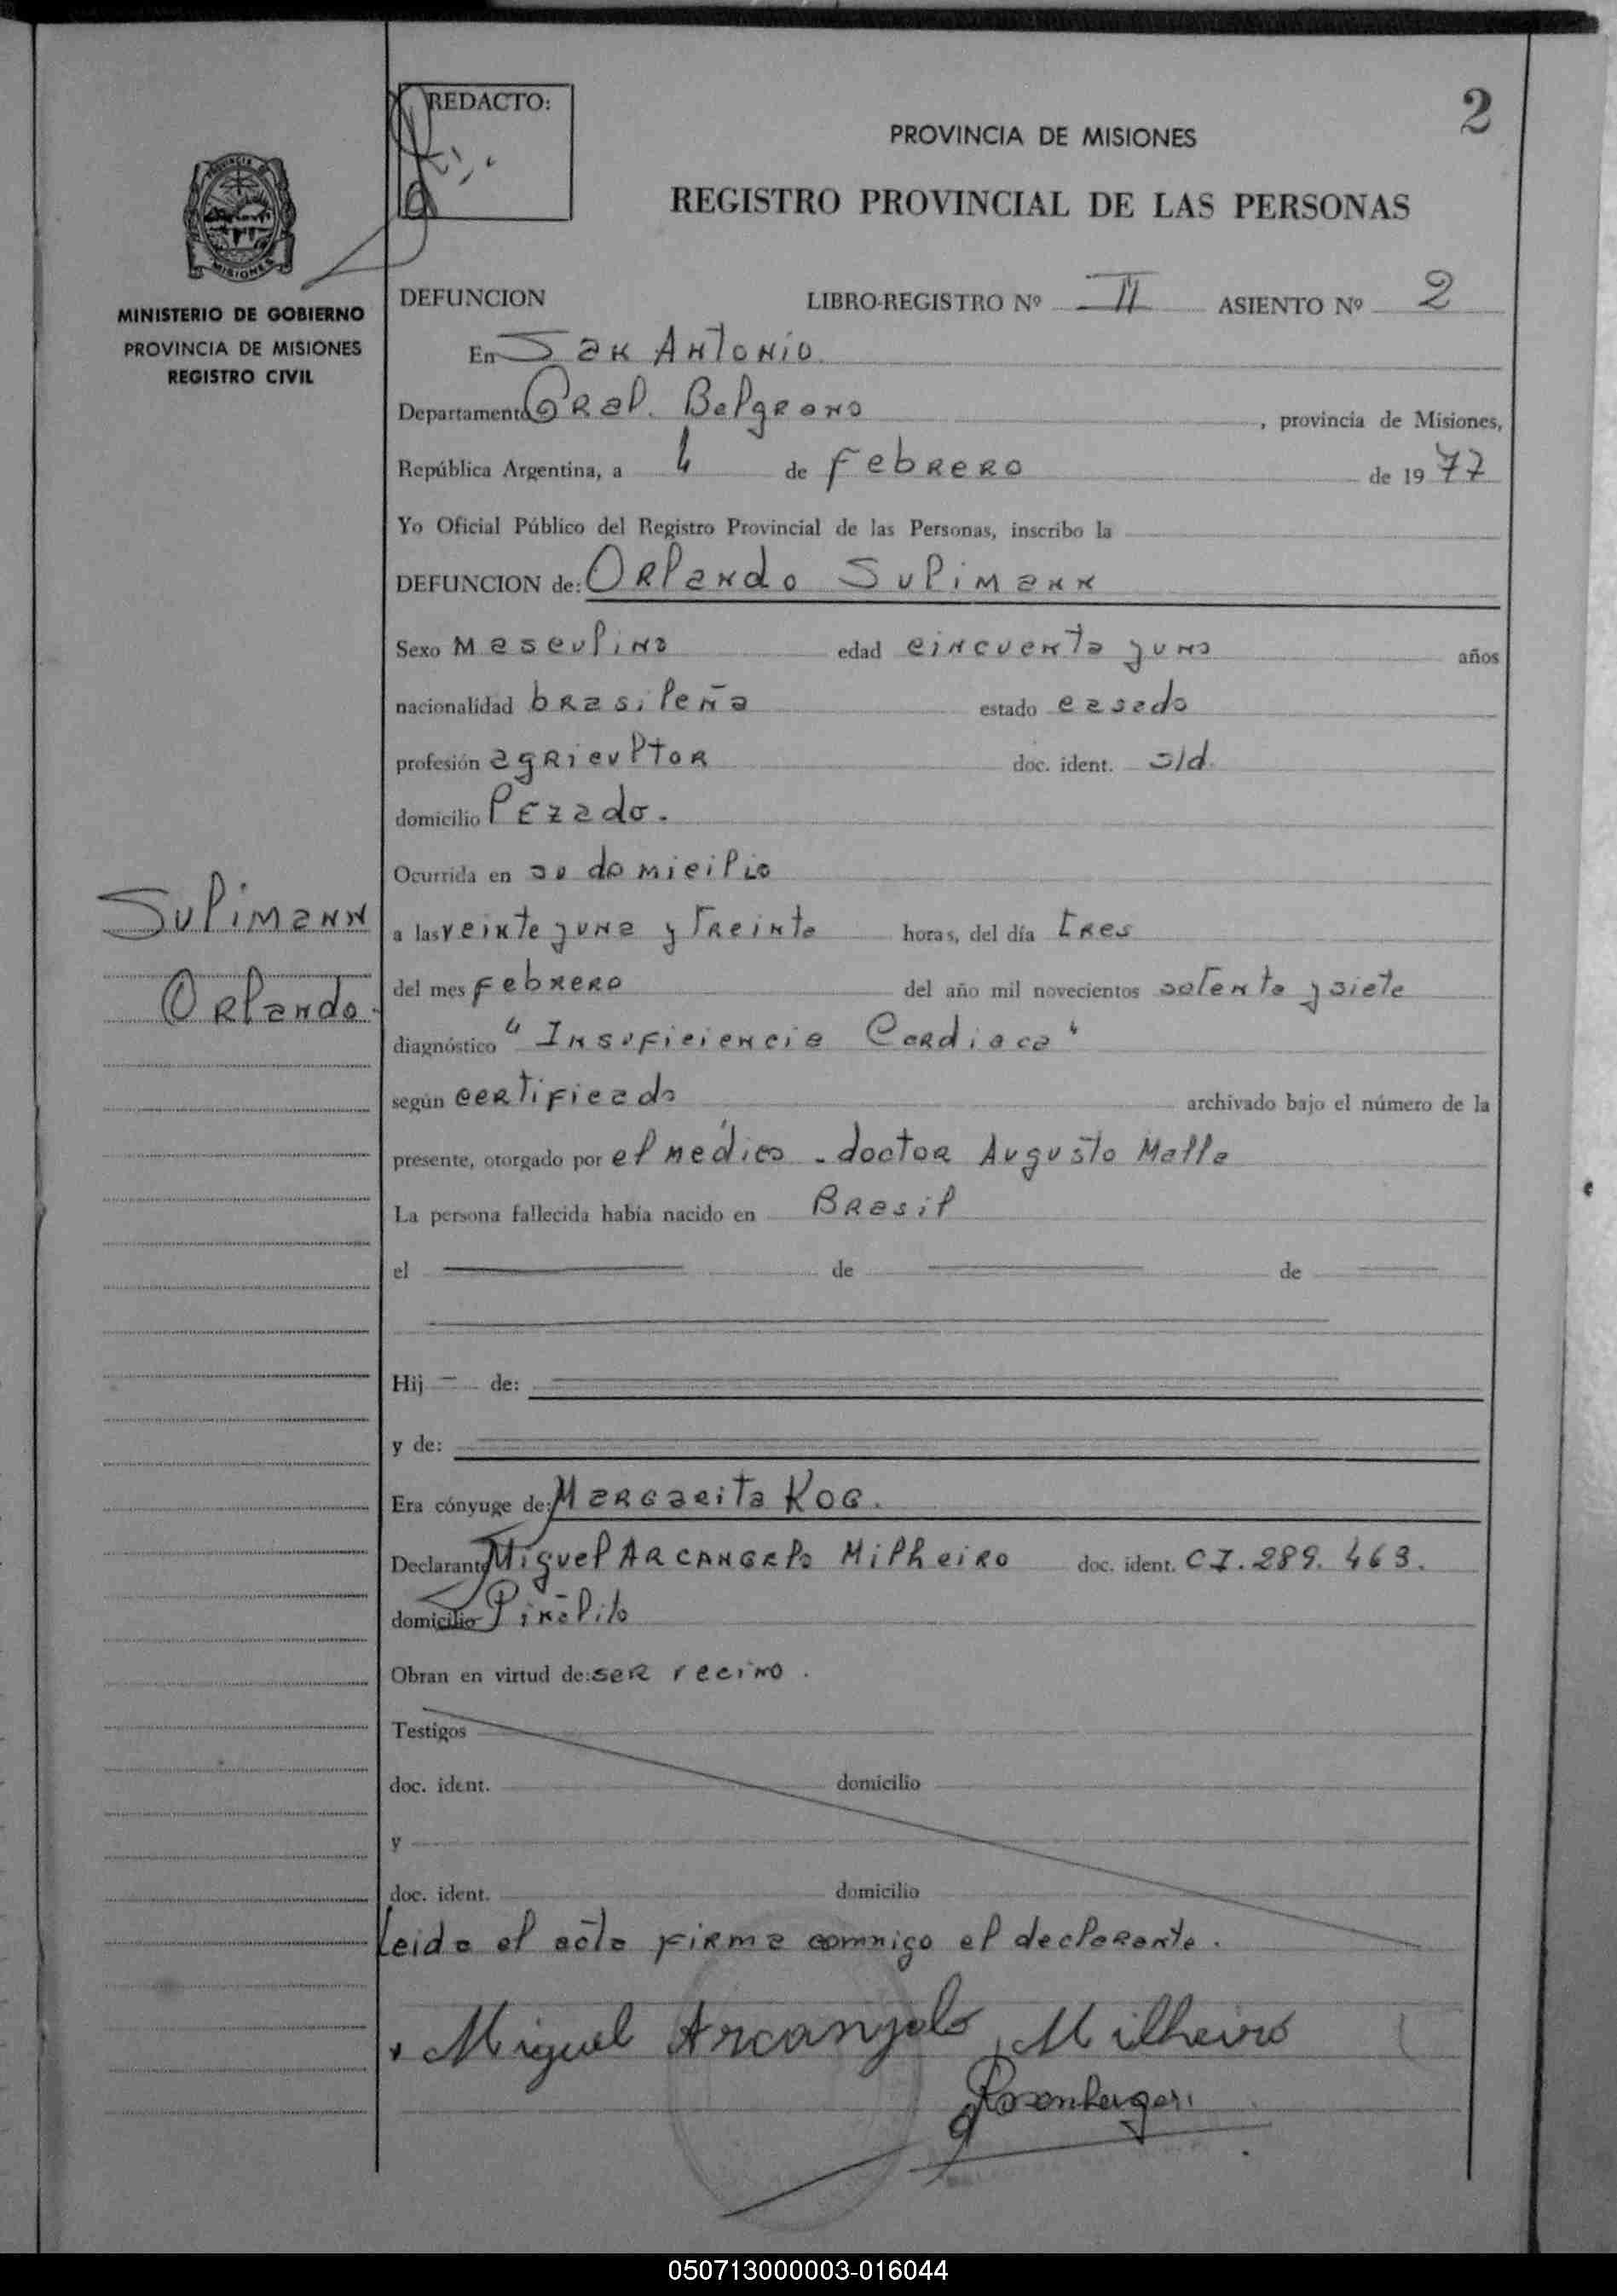 REDACTO:
2
PROVINCIA DE MISIONES
REGISTRO PROVINCIAL DE LAS PERSONAS
PROVINCIA DE
MISIONES
MINISTERIO DE GOBIERNO
PROVINCIA DE MISIONES
REGISTRO CIVIL
DEFUNCION LIBRO-REGISTRO Nº II ASIENTO Nº 2
En San Antonio
Departamento Gral. Belgrano, provincia de Misiones,
República Argentina, a 4 de Febrero de 1977
Yo Oficial Público del Registro Provincial de las Personas, inscribo la
DEFUNCION de: Orlando Sulimann
Sexo masculino edad cincuenta y uno años
nacionalidad brasileña estado casado
profesión agricultor doc. ident. s/d.
domicilio Pezado.
Ocurrida en su domicilio
Sulimann
Orlando.
a las veinte y una y treinta horas, del día tres
del mes febrero del año mil novecientos setenta y siete
diagnóstico "Insuficiencia Cardiaca"
según certificado archivado bajo el número de la
presente, otorgado por el médico - doctor Augusto Malla
La persona fallecida había nacido en Brasil
el de de
Hij de:
y de:
Era cónyuge de: Margarita Kog.
Declarante Miguel Arcangelo Milheiro doc. ident. C.I. 289.463.
domicilio Piñalito
Obran en virtud de: ser vecino.
Testigos
doc. ident. domicilio
y
doc. ident. domicilio
Leida el acta firma comnigo el declarante.
Miguel Arcanjelo Milheiro
Rosenberger
050713000003-016044